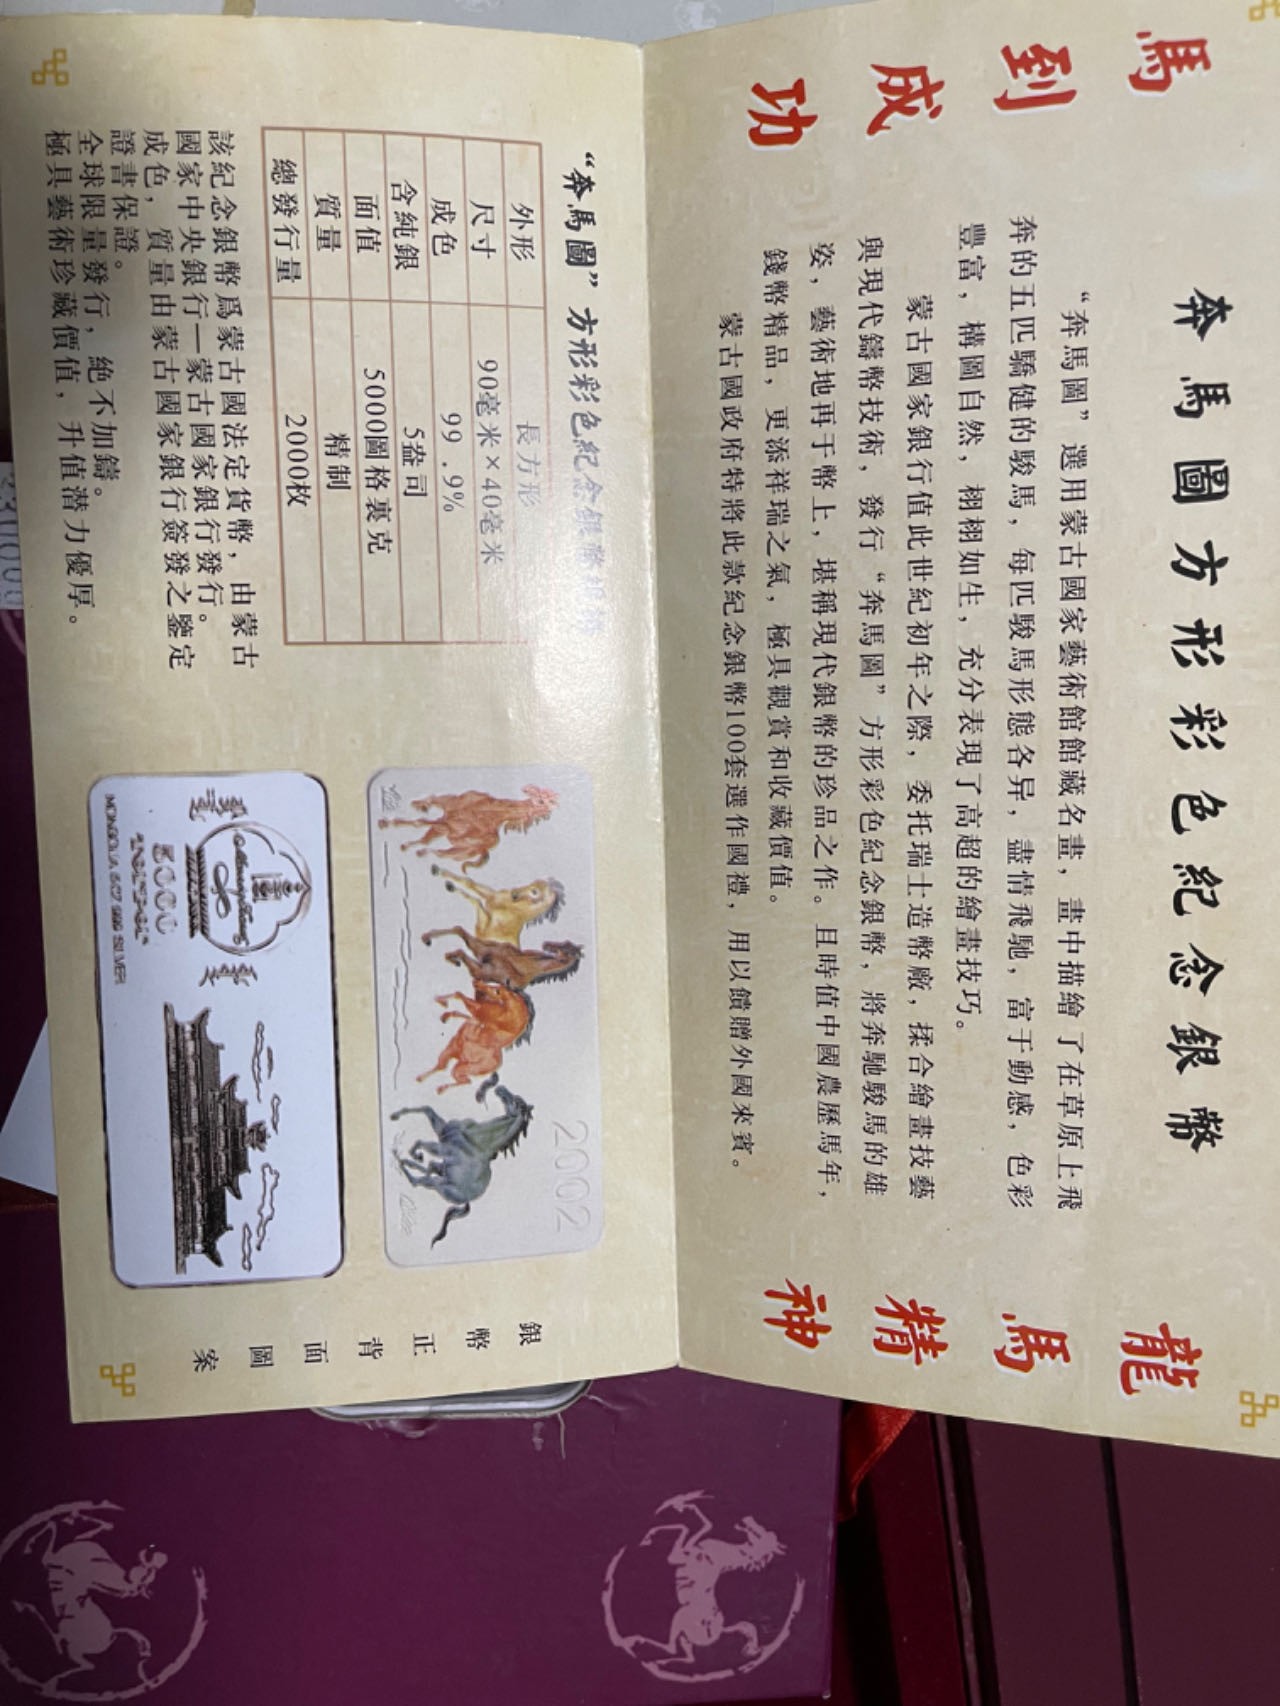 馬到成功
奔馬圖方形彩色紀念銀幣
“奔馬圖”選用蒙古國家藝術館館藏名畫，畫中描繪了在草原上飛
奔的五匹驕健的駿馬，每匹駿馬形態各异，盡情飛馳，富于動感，色彩
豐富，構圖自然，栩栩如生，充分表現了高超的繪畫技巧。
蒙古國家銀行值此世紀初年之際，委托瑞士造幣廠，揉合繪畫技藝
與現代鑄幣技術，發行“奔馬圖”方形彩色紀念銀幣，將奔馳駿馬的雄
姿，藝術地再于幣上，堪稱現代銀幣的珍品之作。且時值中國農歷馬年，
錢幣精品，更添祥瑞之氣，極具觀賞和收藏價值。
蒙古國政府特將此款紀念銀幣100套選作國禮，用以饋贈外國來賓。
龍馬精神
“奔馬圖”方形彩色紀念銀幣規格
外形 長方形
尺寸 90毫米×40毫米
成色 99.9%
含純銀 5盎司
面值 5000圖格裏克
質量 精制
總發行量 2000枚
該紀念銀幣爲蒙古國法定貨幣，由蒙古
國家中央銀行—蒙古國家銀行發行。
成色，質量由蒙古國家銀行簽發之鑒定
證書保證。
全球限量發行，絶不加鑄。
極具藝術珍藏價值，升值潜力優厚。
2002
5000
MONGOLIA 5OZ 999 SILVER
銀幣正背面圖案